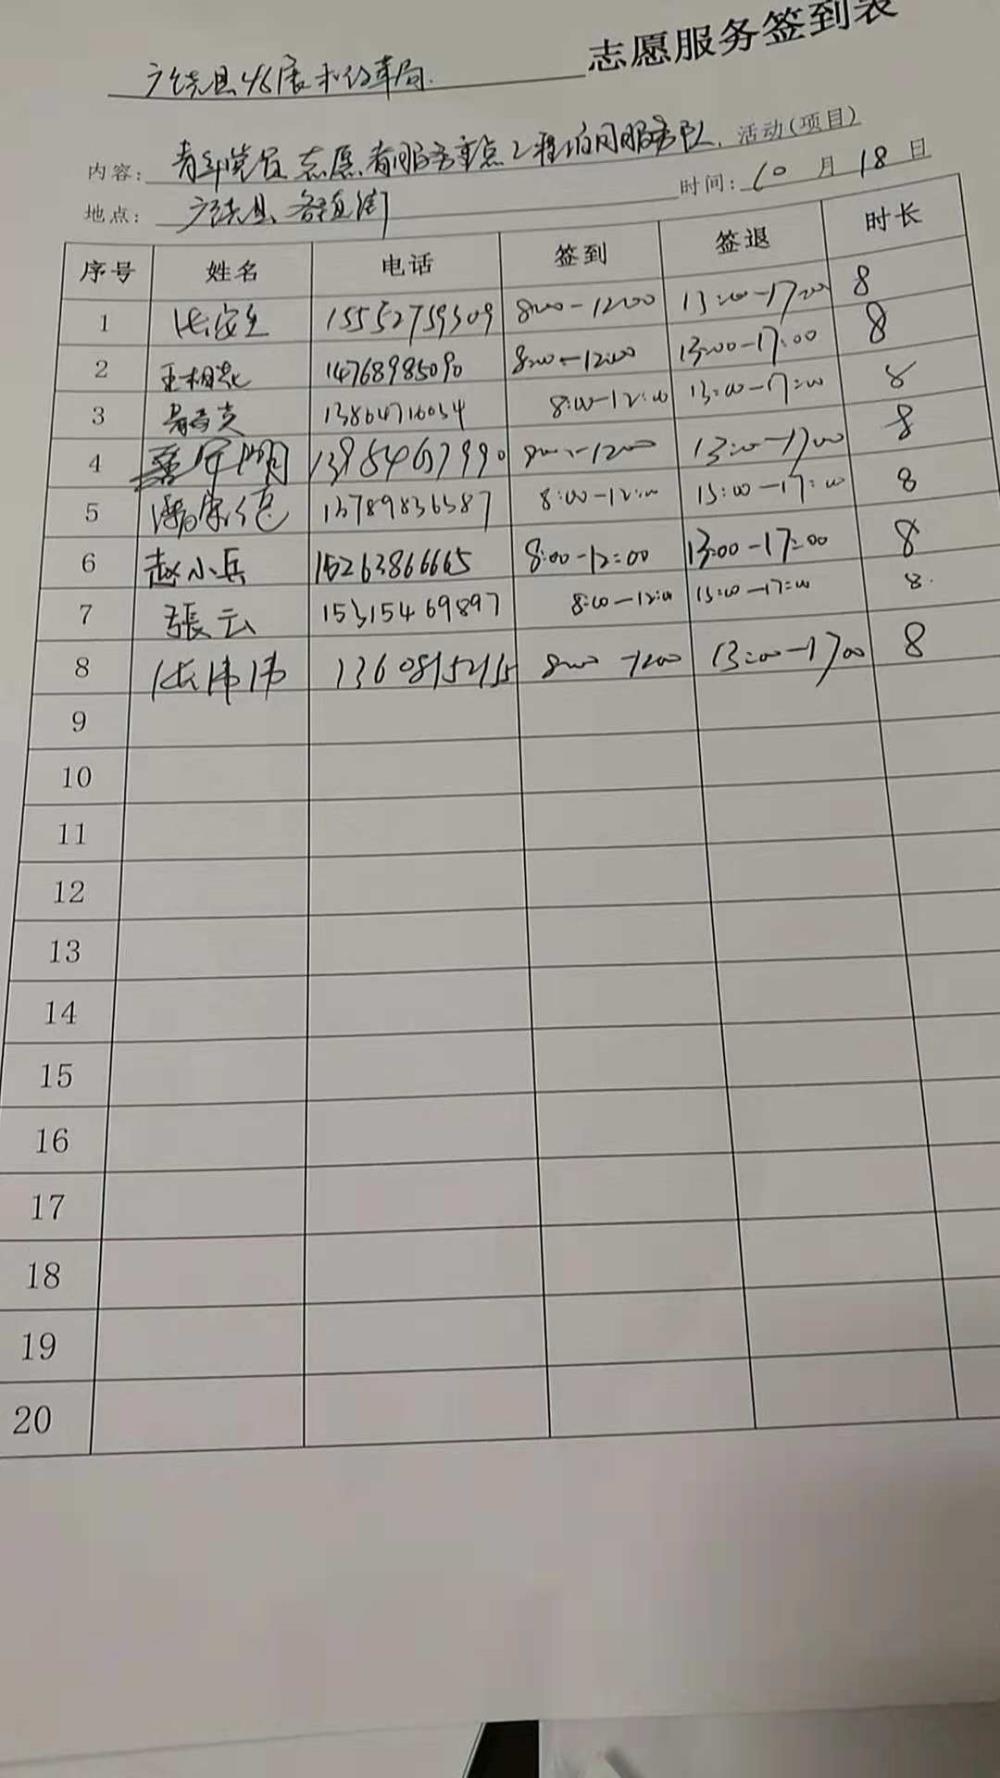 广饶县发展和改革局 志愿服务签到表
内容: 青年党员志愿者服务重点工程访问服务队 活动(项目)
地点: 广饶县各镇街 时间: 10 月 18 日
序号 姓名 电话 签到 签退 时长
1 15552759309 8:00-12:00 13:00-17:00 8
2 14768985090 8:00-12:00 13:00-17:00 8
3 13864716034 8:00-12:00 13:00-17:00 8
4 13954637990 8:00-12:00 13:00-17:00 8
5 13789836587 8:00-12:00 13:00-17:00 8
6 赵小兵 15263866665 8:00-12:00 13:00-17:00 8
7 張云 15315469897 8:00-12:00 13:00-17:00 8
8 张伟伟 8:00-12:00 13:00-17:00 8
9
10
11
12
13
14
15
16
17
18
19
20